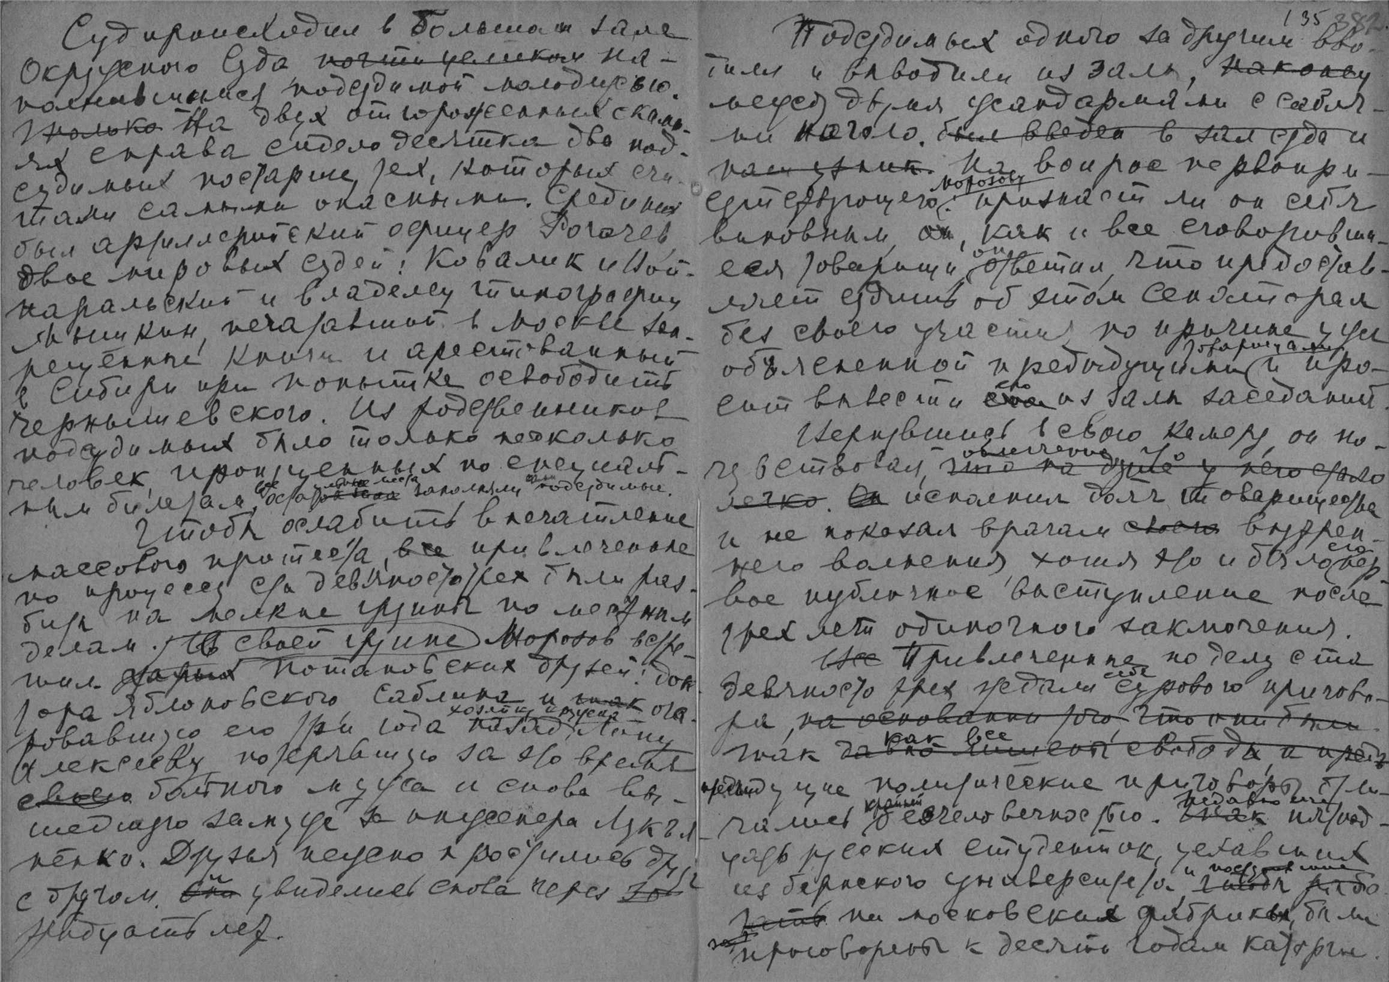 Суд происходил в большом зале
Окружного Суда почти целиком на-
полнившимся подсудимой молодежью.
Только На двух отгороженных скамь-
ях справа сидело десятка два под-
судимых постарше, тех, которых счи-
тали самыми опасными. Среди них
был артиллерийский офицер Рогачев,
двое мировых судей: Ковалик и Вой-
наральский и владелец типографии
Мышкин, печатавший в Москве зап-
рещенные книги и арестованный
в Сибири при попытке освободить
Чернышевского. Из родственников
подсудимых было только несколько
человек пропущенных по специаль-
ным билетам, все остальные места заполняли сами подсудимые.
Чтобы ослабить впечатление
массового протеста, все привлеченные
по процессу ста девяносто трех были раз-
биты на мелкие группы по местным
делам. В своей группе Морозов встре-
тил старых Потаповских друзей: док-
тора Добровольского Саблина и так оча-
ровавшую его три года назад хозяйку имения Лёлю
Алексееву потерявшую за это время
своего больного мужа и снова вы-
шедшую замуж за инженера Лукья
ненко. Друзья нежно простились друг
с другом. Они увиделись снова через
тридцать лет.
135 382
Подсудимых одного за другим вво-
дили и выводили из залы, наконец
между двумя жандармами с сабля-
ми наголо. был введен в зал суда и
наш узник. На вопрос первопри-
сутствующего: Морозову признает ли он себя
виновным, он, как и все сговоривши-
еся товарищи, он ответил, что предостав-
ляет судить об этом сенаторам
без своего участия по причине уже
объясненной предыдущими товарищами и про-
сит вывести его из залы заседаний.
Вернувшись в свою камеру, он по-
чувствовал, облегчение это на душе у него стало
легко. Он исполнил долг товарищества
и не показал врагам своего внутрен-
него волнения хотя это и было его пер
вое публичное выступление после
трех лет одиночного заключения.
Все Привлеченные по делу ста
девяносто трех ждали себе сурового пригово-
ра, на основании того, что они были
так как все давно лишены свободы, и пред
предыдущие политические приговоры отли-
чались крайней бесчеловечностью. Так недавно еще пятнад-
цать русских студенток, уехавших
из бернского университета и поступивших чтобы рабо
тать на московских фабриках, были
приговорены к десяти годам каторги.